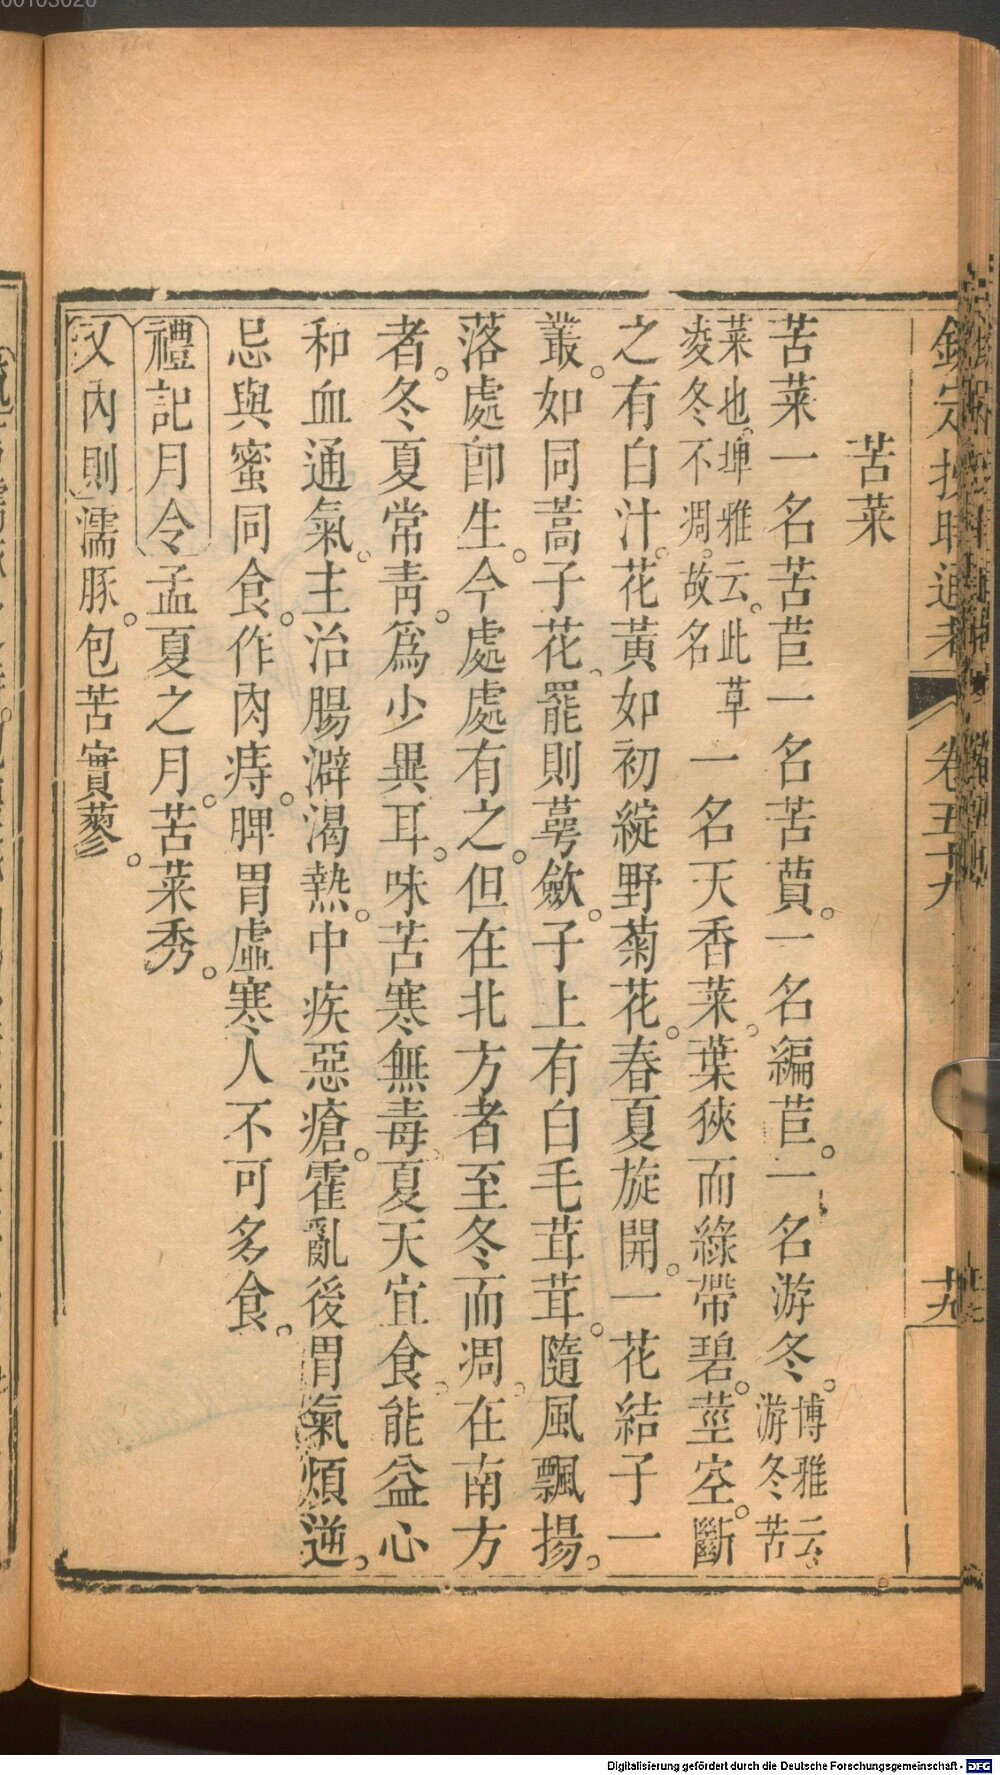 欽定授時通考 卷五十九 十九
苦菜
苦菜一名苦苣一名苦蕒。一名編苣。一名游冬。博雅云游冬苦
菜也。埤雅云。此草凌冬不凋。故名一名天香菜。葉狹而綠帶碧。莖空。斷
之有白汁。花黃如初綻野菊花。春夏旋開。一花結子一
叢。如同蒿子花。罷則萼斂。子上有白毛茸茸。隨風飄揚。
落處卽生。今處處有之。但在北方者至冬而凋。在南方
者。冬夏常靑。爲少異耳。味苦寒無毒。夏天宜食。能益心
和血通氣。主治腸澼渴熱。中疾惡瘡。霍亂後胃氣煩逆。
忌與蜜同食。作肉痔。脾胃虛寒人不可多食。
禮記月令孟夏之月。苦菜秀。
又內則濡豚。包苦實蓼。
00103020
Digitalisierung gefördert durch die Deutsche Forschungsgemeinschaft - DFG